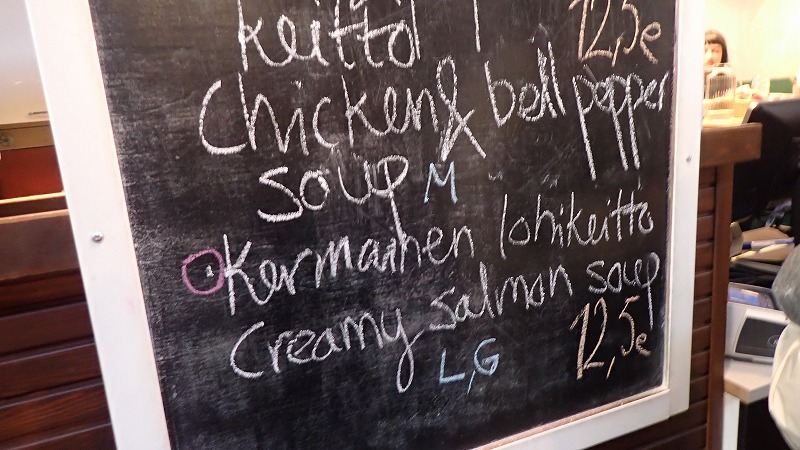 keitto 12,5e
Chicken & bell pepper
soup M
Kermainen lohikeitto
Creamy salmon soup
L,G 12,5e